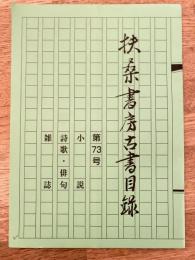 扶桑書房古書目録
第73号
小説
詩歌・俳句
雑誌